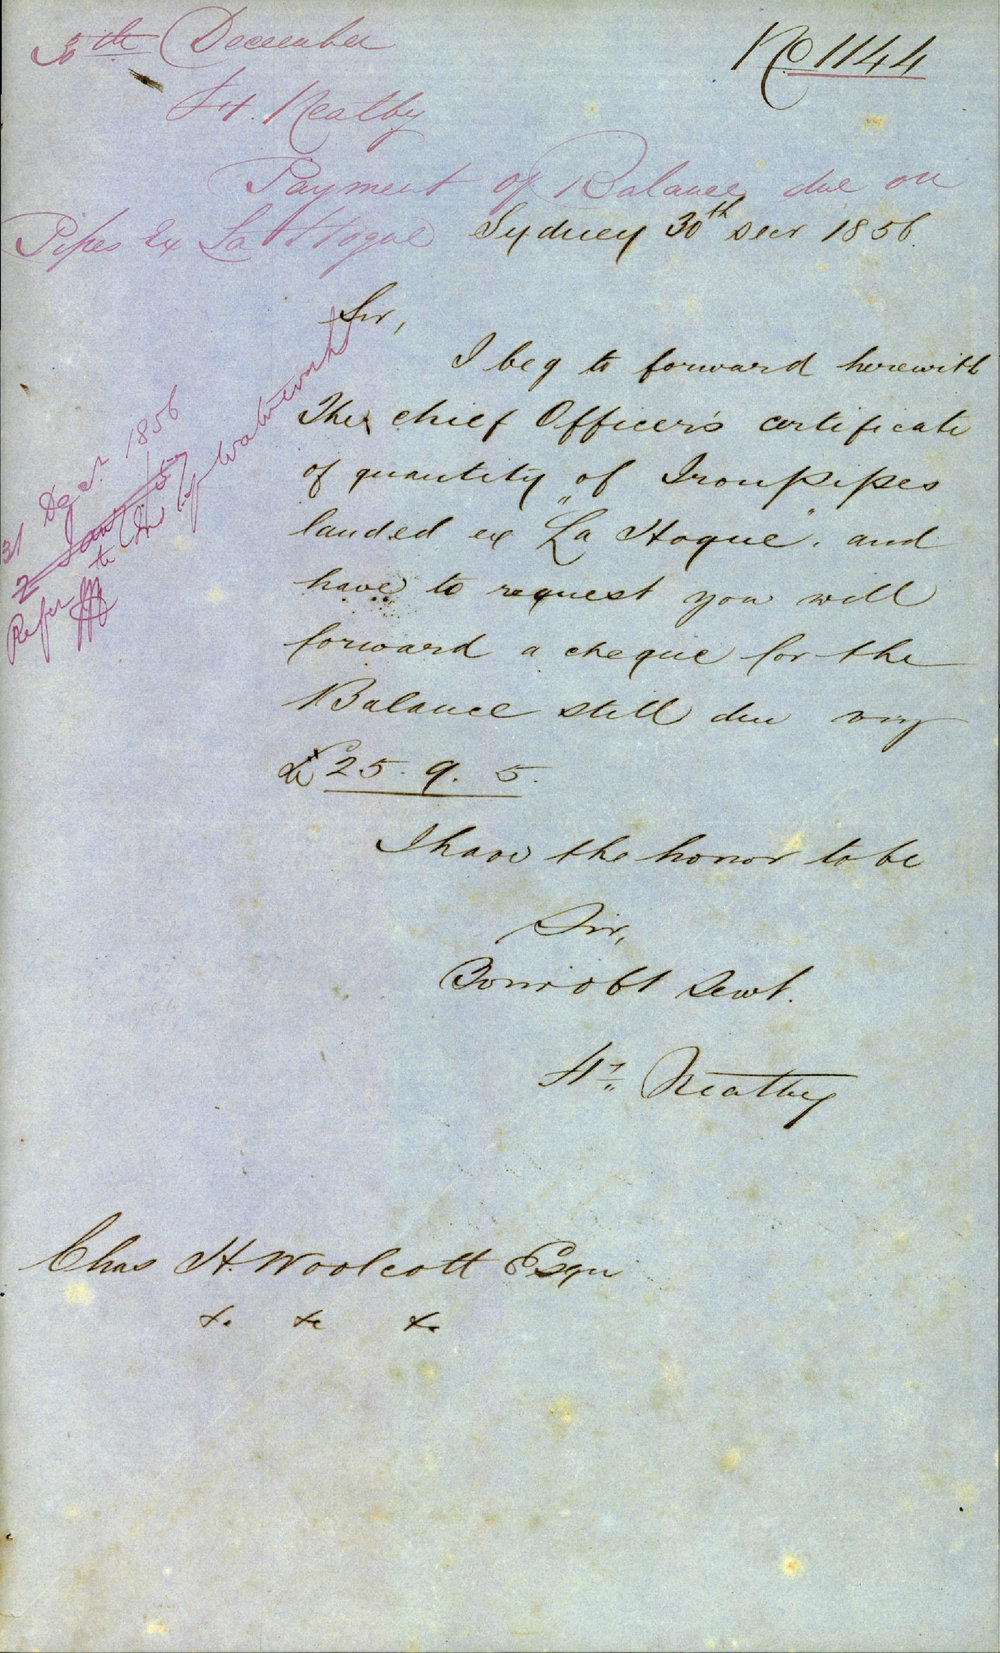 30th December
No 1144
H. Neatby
Payment of Balance due on
Pipes Ex La Hogue
Sydney 30th Decr 1856.
Sir,
I beg to forward herewith
The chief Officer's certificate
of quantity of Iron pipes
landed ex "La Hogue". and
have to request you will
forward a cheque for the
Balance still due viz
£25. 9. 5.
I have the honor to be
Sir,
Your obt Servt.
Hy Neatby
Chas H. Woolcott Esqr
&c &c &c
31 Decr 1856
2
Refer to Waterworks